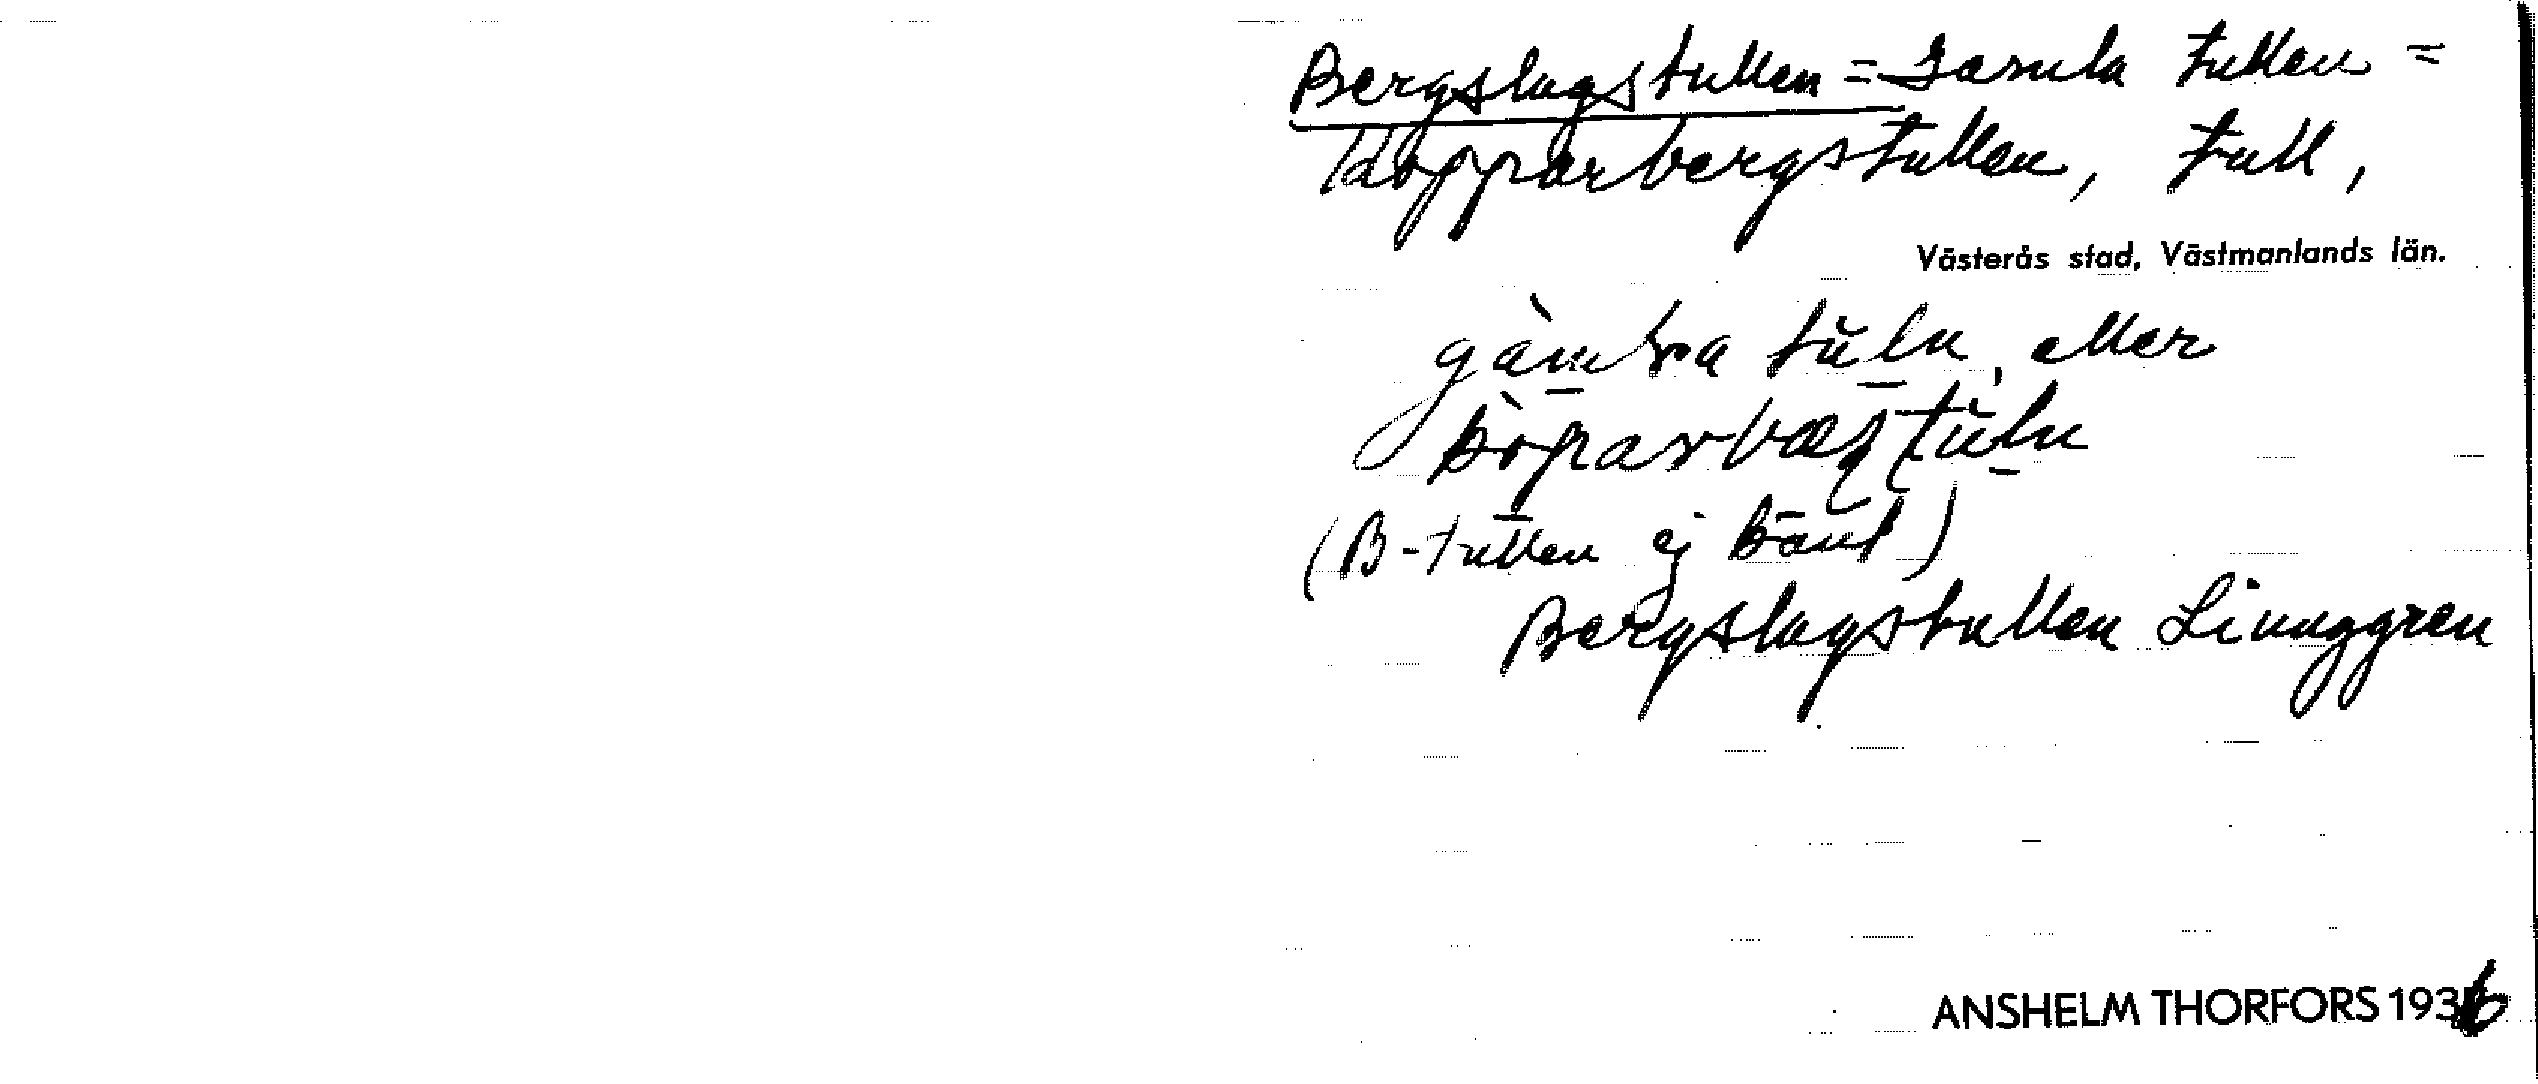 Bergslagstullen = Gamla tullen =
Kopparbergstullen, tull,
Västerås stad, Västmanlands län.
eller
(B-tullen ej känd)
Bergslagstullen Linnggren
ANSHELM THORFORS 1936